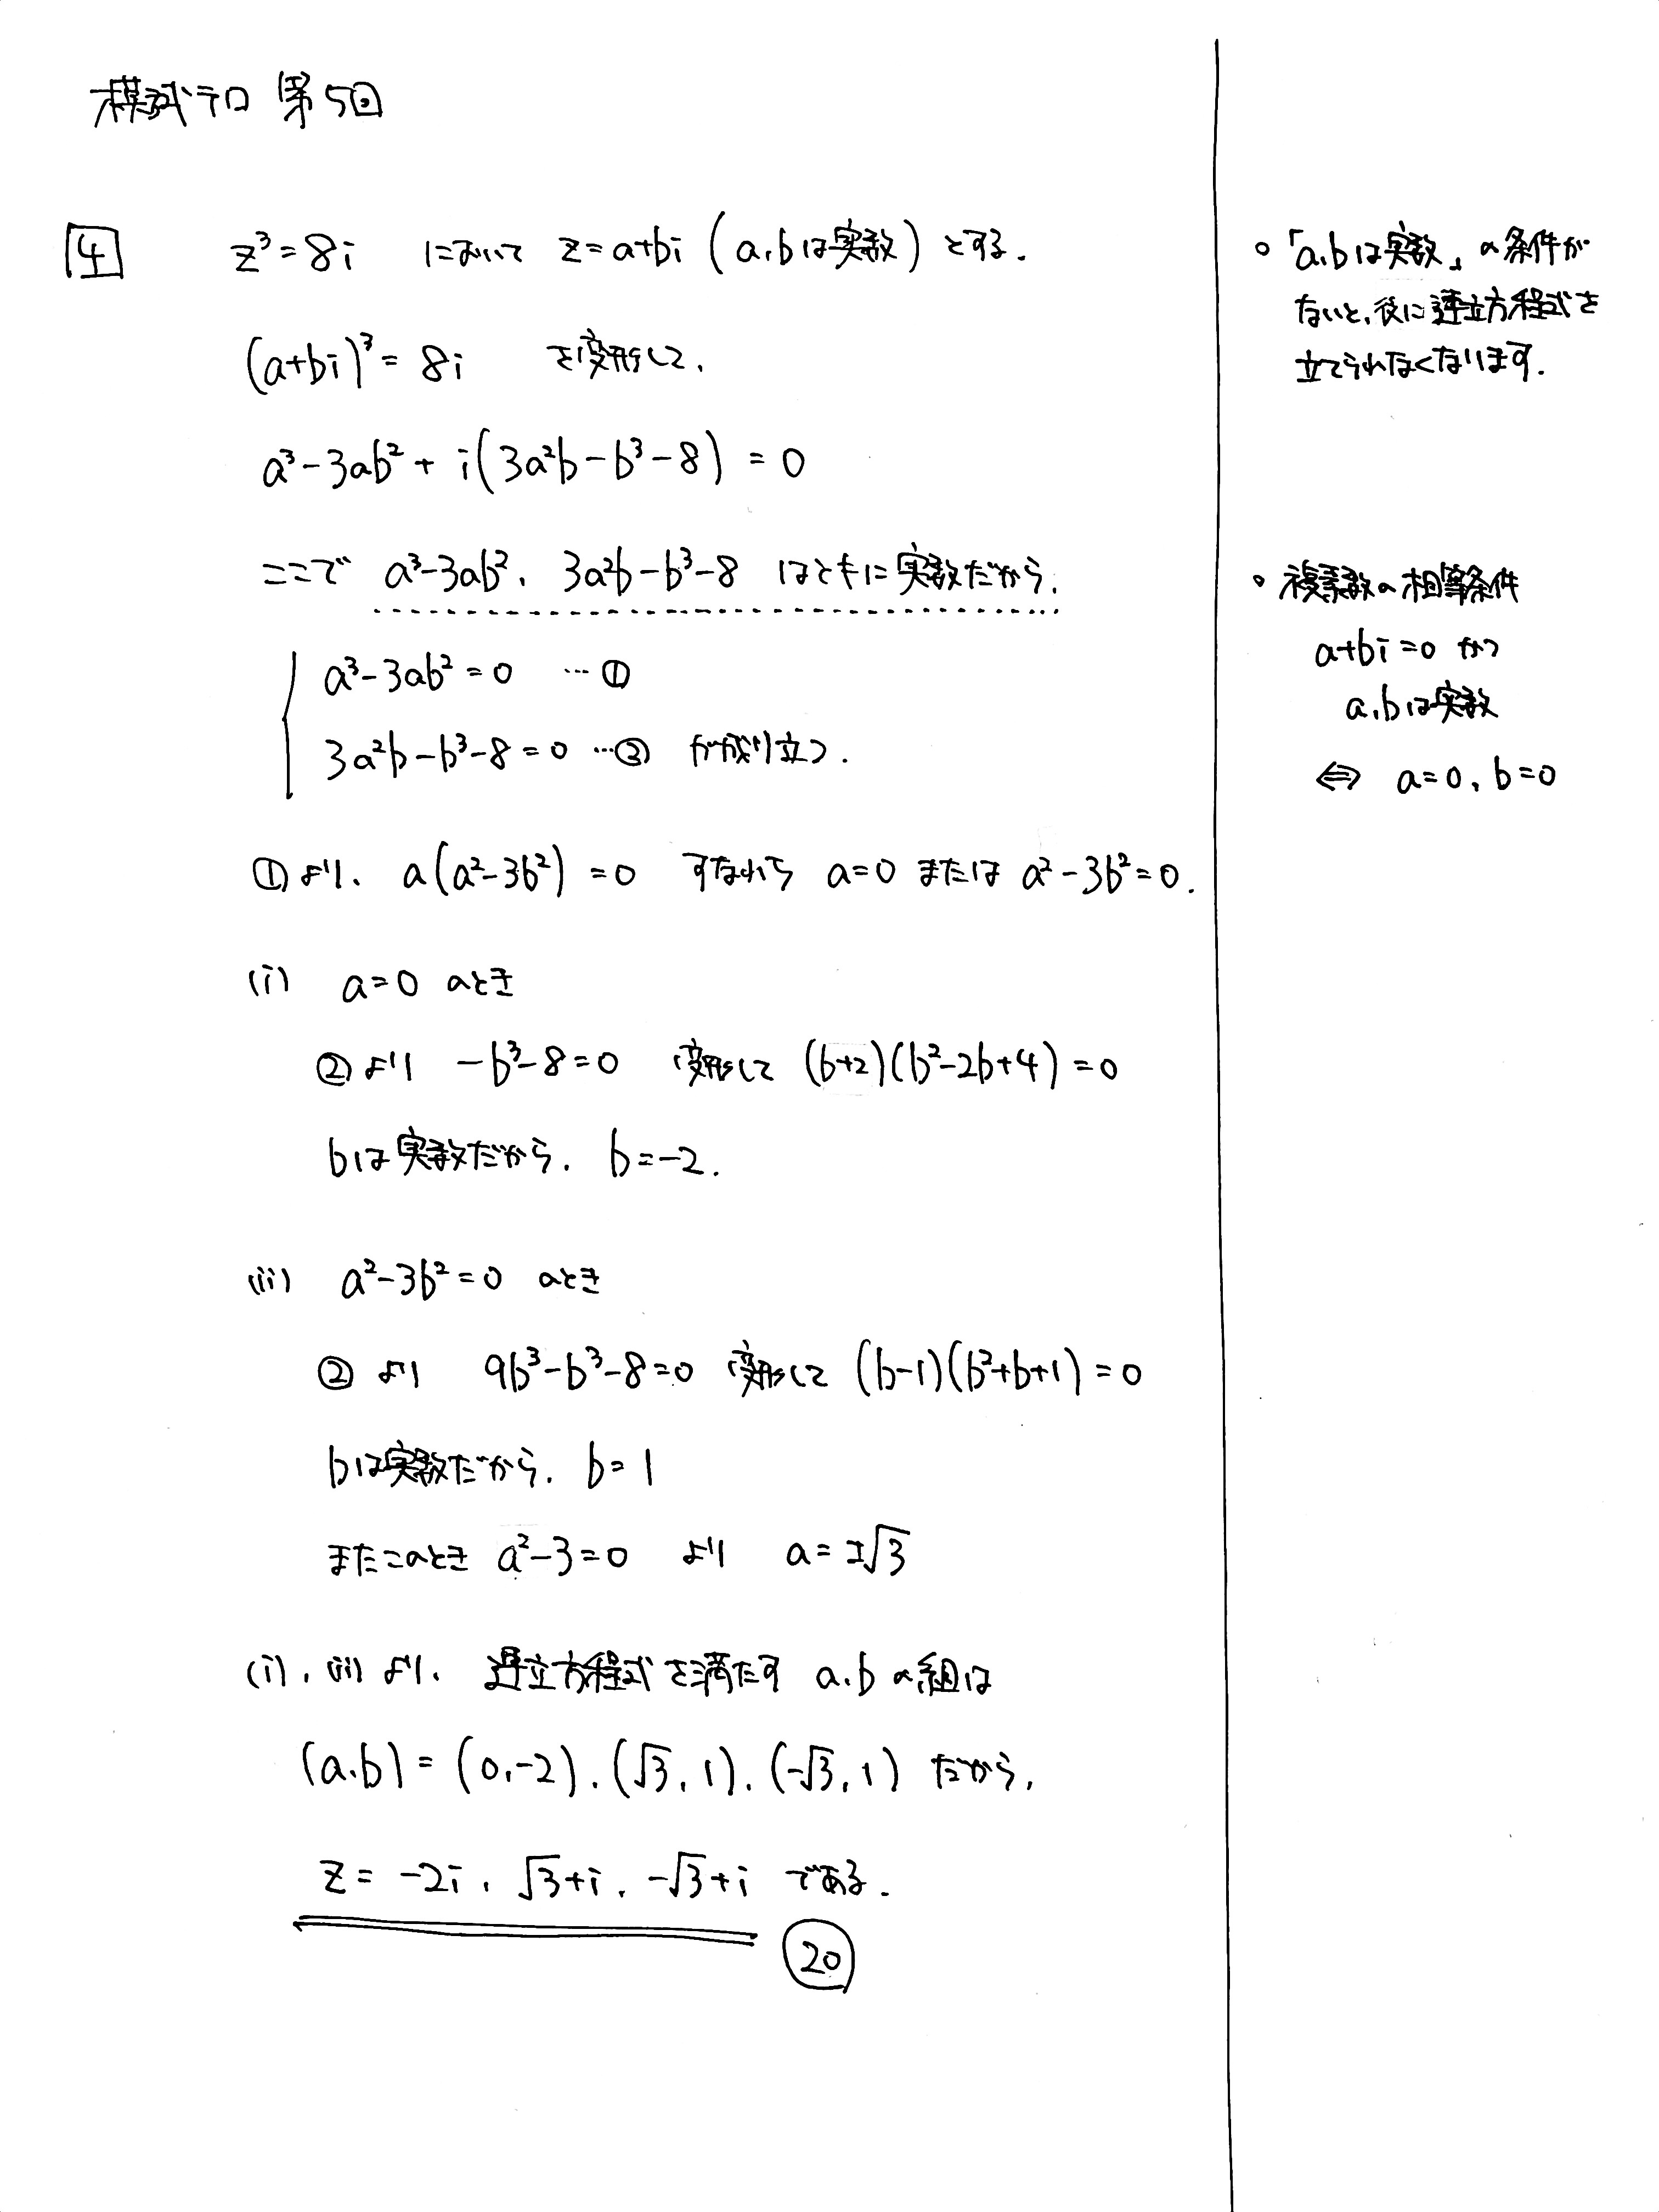 模試テロ 第5回
4 z³=8i において z=a+bi (a,bは実数) とする.
(a+bi)³=8i を変形して,
a³-3ab²+i(3a²b-b³-8)=0
ここで a³-3ab², 3a²b-b³-8 はともに実数だから,
a³-3ab²=0 …①
3a²b-b³-8=0 …② が成り立つ.
①より, a(a²-3b²)=0 すなわち a=0 または a²-3b²=0.
(i) a=0 のとき
②より -b³-8=0 変形して (b+2)(b²-2b+4)=0
bは実数だから, b=-2.
(ii) a²-3b²=0 のとき
②より 9b³-b³-8=0 変形して (b-1)(b²+b+1)=0
bは実数だから, b=1
またこのとき a²-3=0 より a=±√3
(i), (ii)より, 連立方程式を満たす a,b の組は
(a,b)=(0,-2), (√3,1), (-√3,1) だから,
z=-2i, √3+i, -√3+i である.
20
○「a,bは実数」の条件が
ないと, 後に連立方程式を
立てられなくなります.
○ 複素数の相等条件
a+bi=0 かつ
a,bは実数
⇔ a=0, b=0